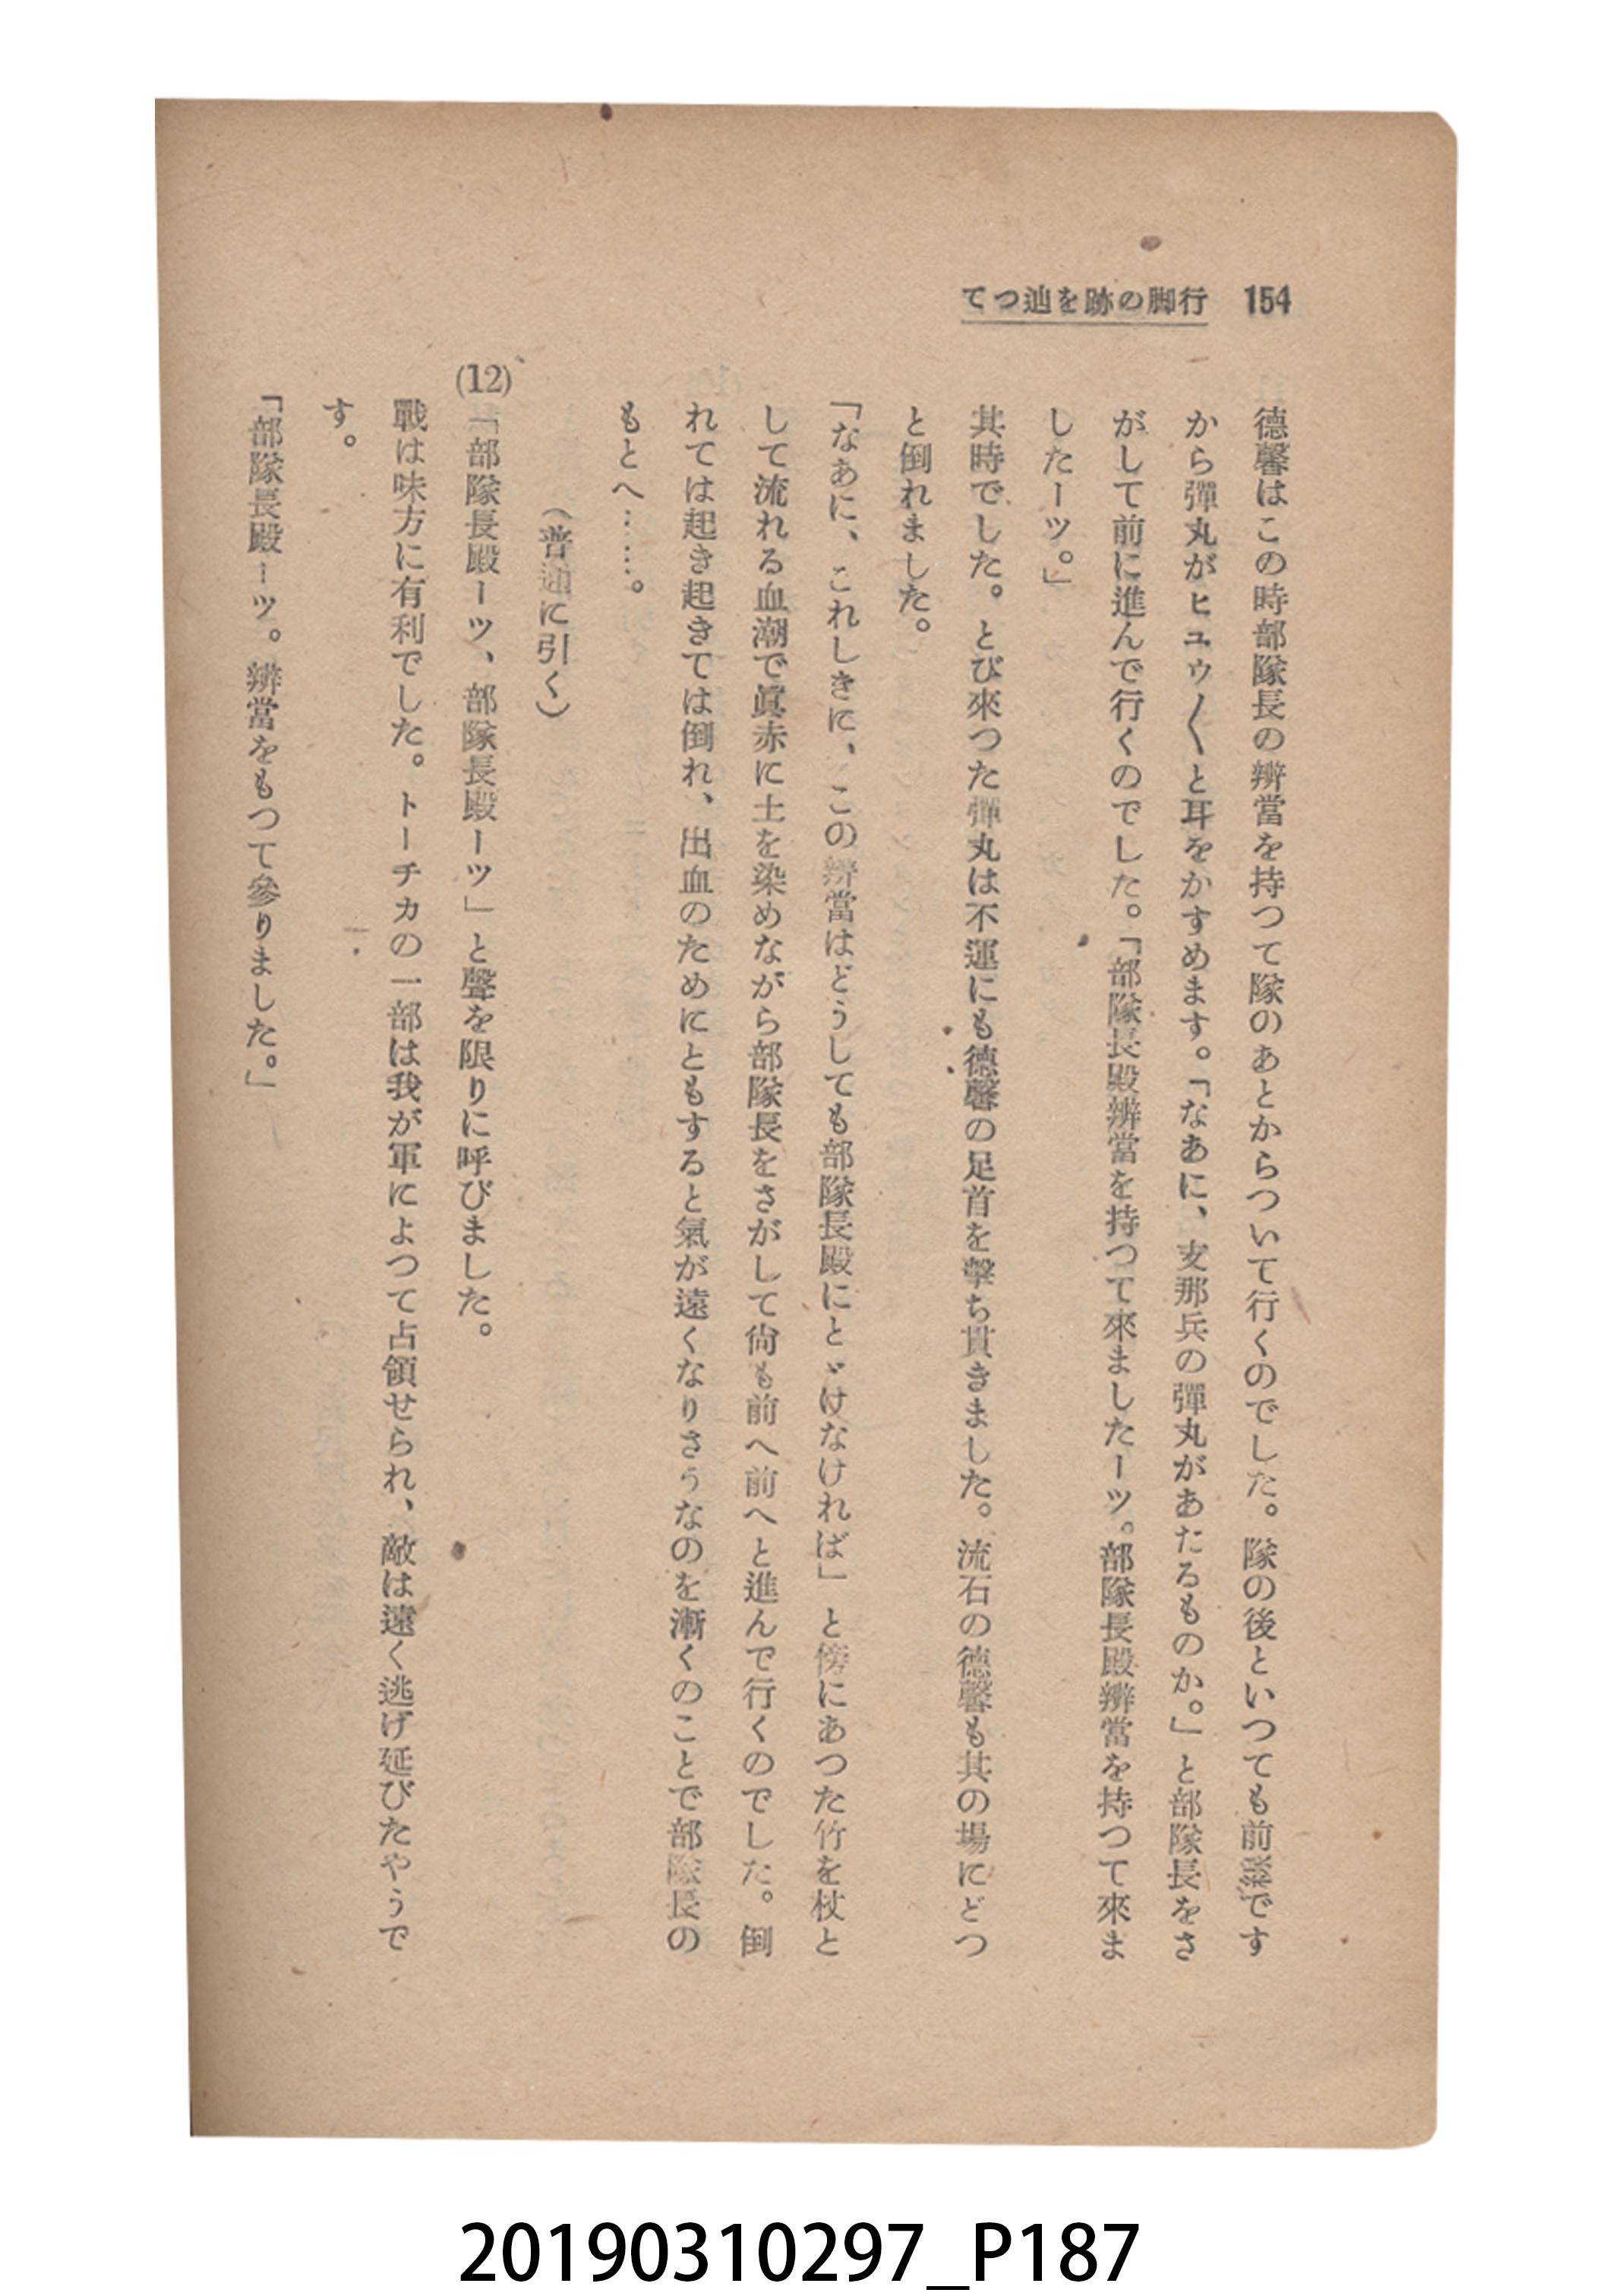 154 行脚の跡を辿つて
德馨はこの時部隊長の辨當を持つて隊のあとからついて行くのでした。隊の後といつても前線です
から彈丸がヒュゥ〱と耳をかすめます。「なあに、支那兵の彈丸があたるものか。」と部隊長をさ
がして前に進んで行くのでした。「部隊長殿辨當を持つて來ましたーツ。部隊長殿辨當を持つて來ま
したーツ。」
其時でした。とび來つた彈丸は不運にも德馨の足首を擊ち貫きました。流石の德馨も其の場にどつ
と倒れました。
「なあに、これしきに、この辨當はどうしても部隊長殿にとゞけなければ」と傍にあつた竹を杖と
して流れる血潮で眞赤に土を染めながら部隊長をさがして尙も前へ前へと進んで行くのでした。倒
れては起き起きては倒れ、出血のためにともすると氣が遠くなりさうなのを漸くのことで部隊長の
もとへ……。
(普通に引く)
(12)「部隊長殿ーツ、部隊長殿ーツ」と聲を限りに呼びました。
戰は味方に有利でした。トーチカの一部は我が軍によつて占領せられ、敵は遠く逃げ延びたやうで
す。
「部隊長殿ーツ。辨當をもつて參りました。」
20190310297_P187